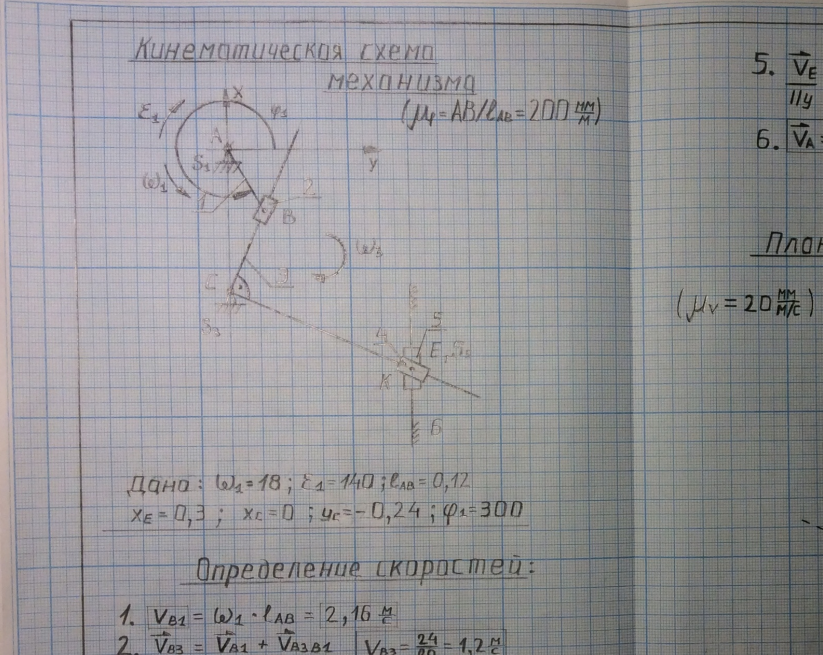 Кинематическая схема
механизма
(μl = AB/lAB = 200 мм/м)
X
ε1
φ1
A
y
S1
ω1
1
2
B
ω3
C
3
S3
4
5
E,
K
6
Дано: ω1=18; ε1=140; lAB=0,12
xE=0,3; xC=0; yC=-0,24; φ1=300
Определение скоростей:
1. VB1 = ω1 · lAB = 2,16 м/с
2. VB3 = VB1 + VB3B1 VB3 = 24/20 = 1,2 м/с
5. VE
//y
6. VA
План
(μv = 20 мм/м/с)